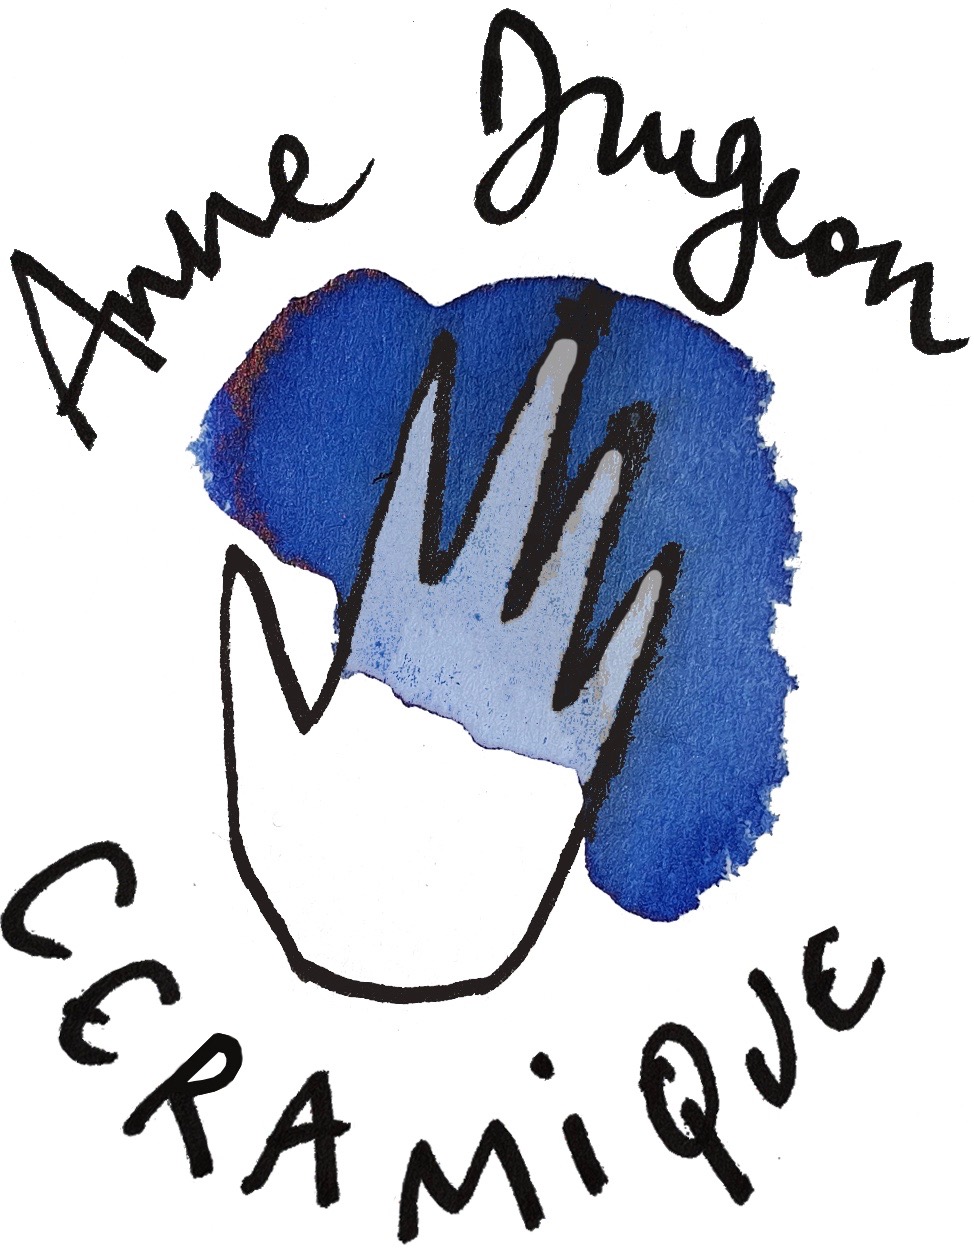 Anne Jugeon
CERAMiQUE